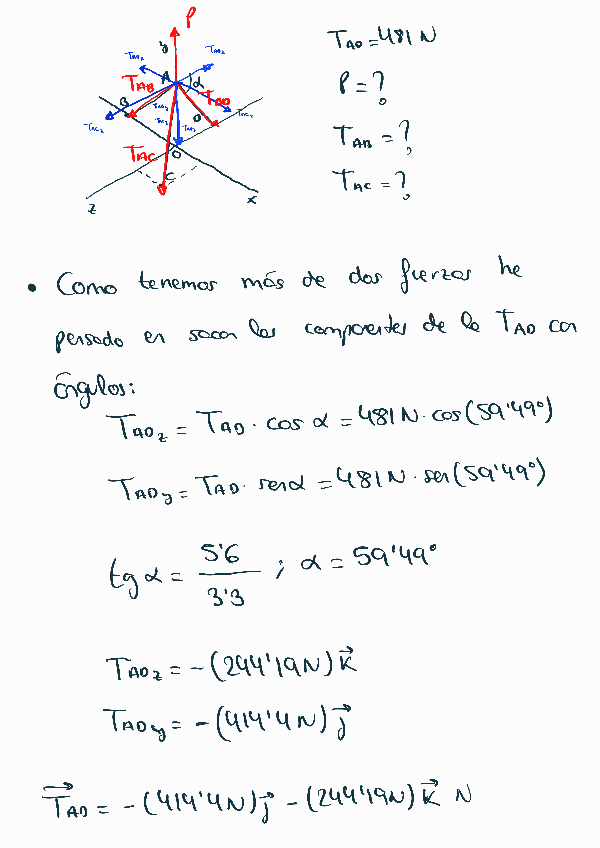 P
y
T_ADz
T_AOz
T_AB
A
α
T_AD
B
T_ACz
D
T_AC
O
C
z
x
T_AD = 481 N
P = ?
T_AB = ?
T_AC = ?
• Como tenemos más de dos fuerzas he
pensado en sacar las componentes de la T_AD con
ángulos:
T_ADz = T_AD · cos α = 481 N · cos (59'49°)
T_ADy = T_AD · senα = 481 N · sen (59'49°)
tg α = 5'6 / 3'3 ; α = 59'49°
T_ADz = -(244'19N) k⃗
T_ADy = -(414'4N) j⃗
T⃗_AD = -(414'4N) j⃗ - (244'19N) k⃗ N